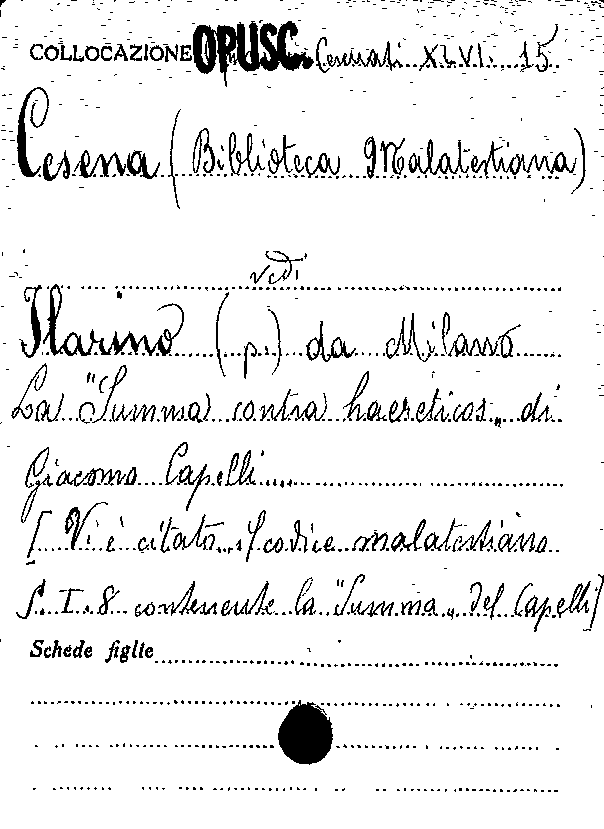 COLLOCAZIONE OPUSC. Cesenati XLVI. 15
Cesena (Biblioteca Malatestiana)
vedi
Ilarino (p.) da Milano
La "Summa contra haereticos„ di
Giacomo Capelli....
[Vi è citato il codice malatestiano
S. I. 8 contenente la "Summa„ del Capelli]
Schede figlie